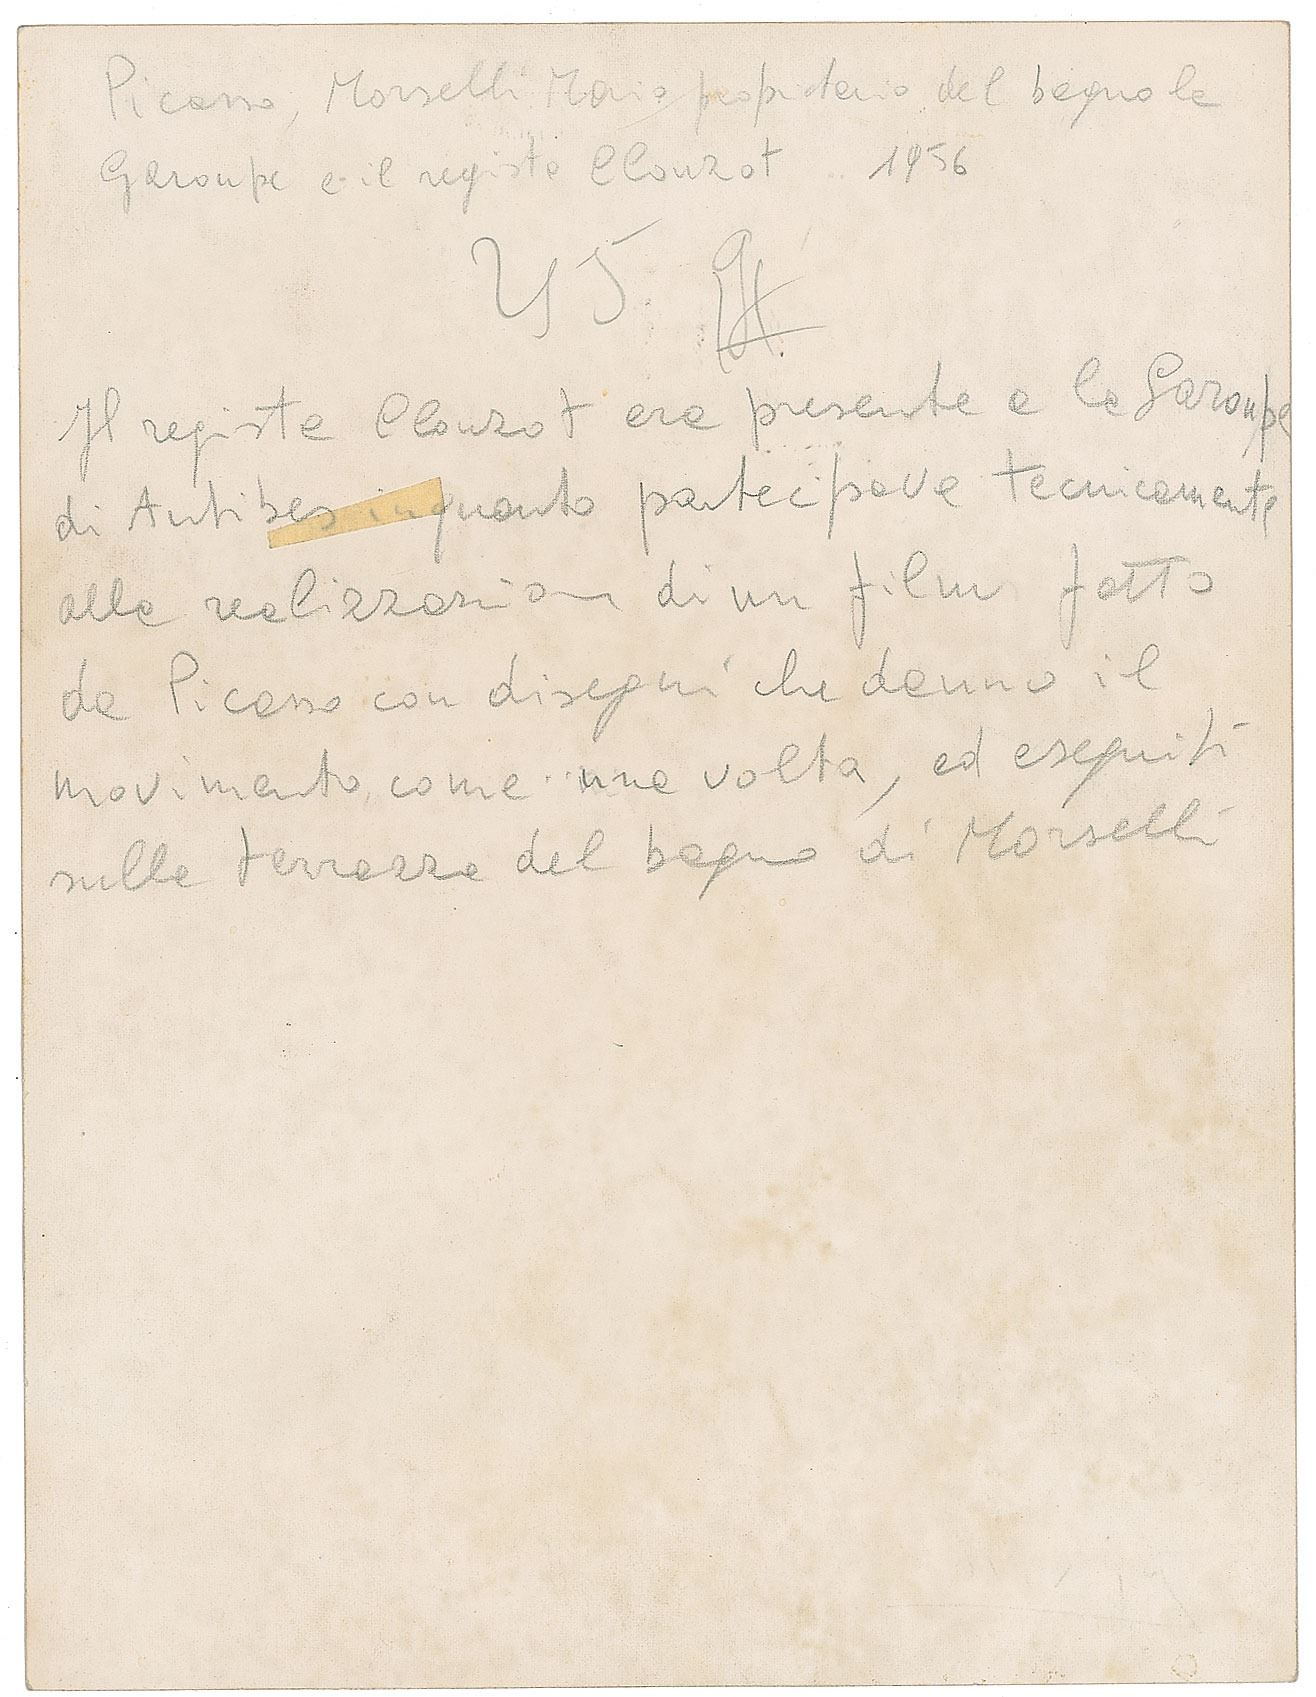 Picasso, Morselli Mario propietario del bagno la
Garoupe e il regista Clouzot 1956
Il regista Clouzot era presente a la Garoupe
di Antibes inquanto partecipava tecnicamente
alla realizzazione di un film fatto
da Picasso con disegni che danno il
movimento come una volta, ed eseguiti
sulla terrazza del bagno di Morselli